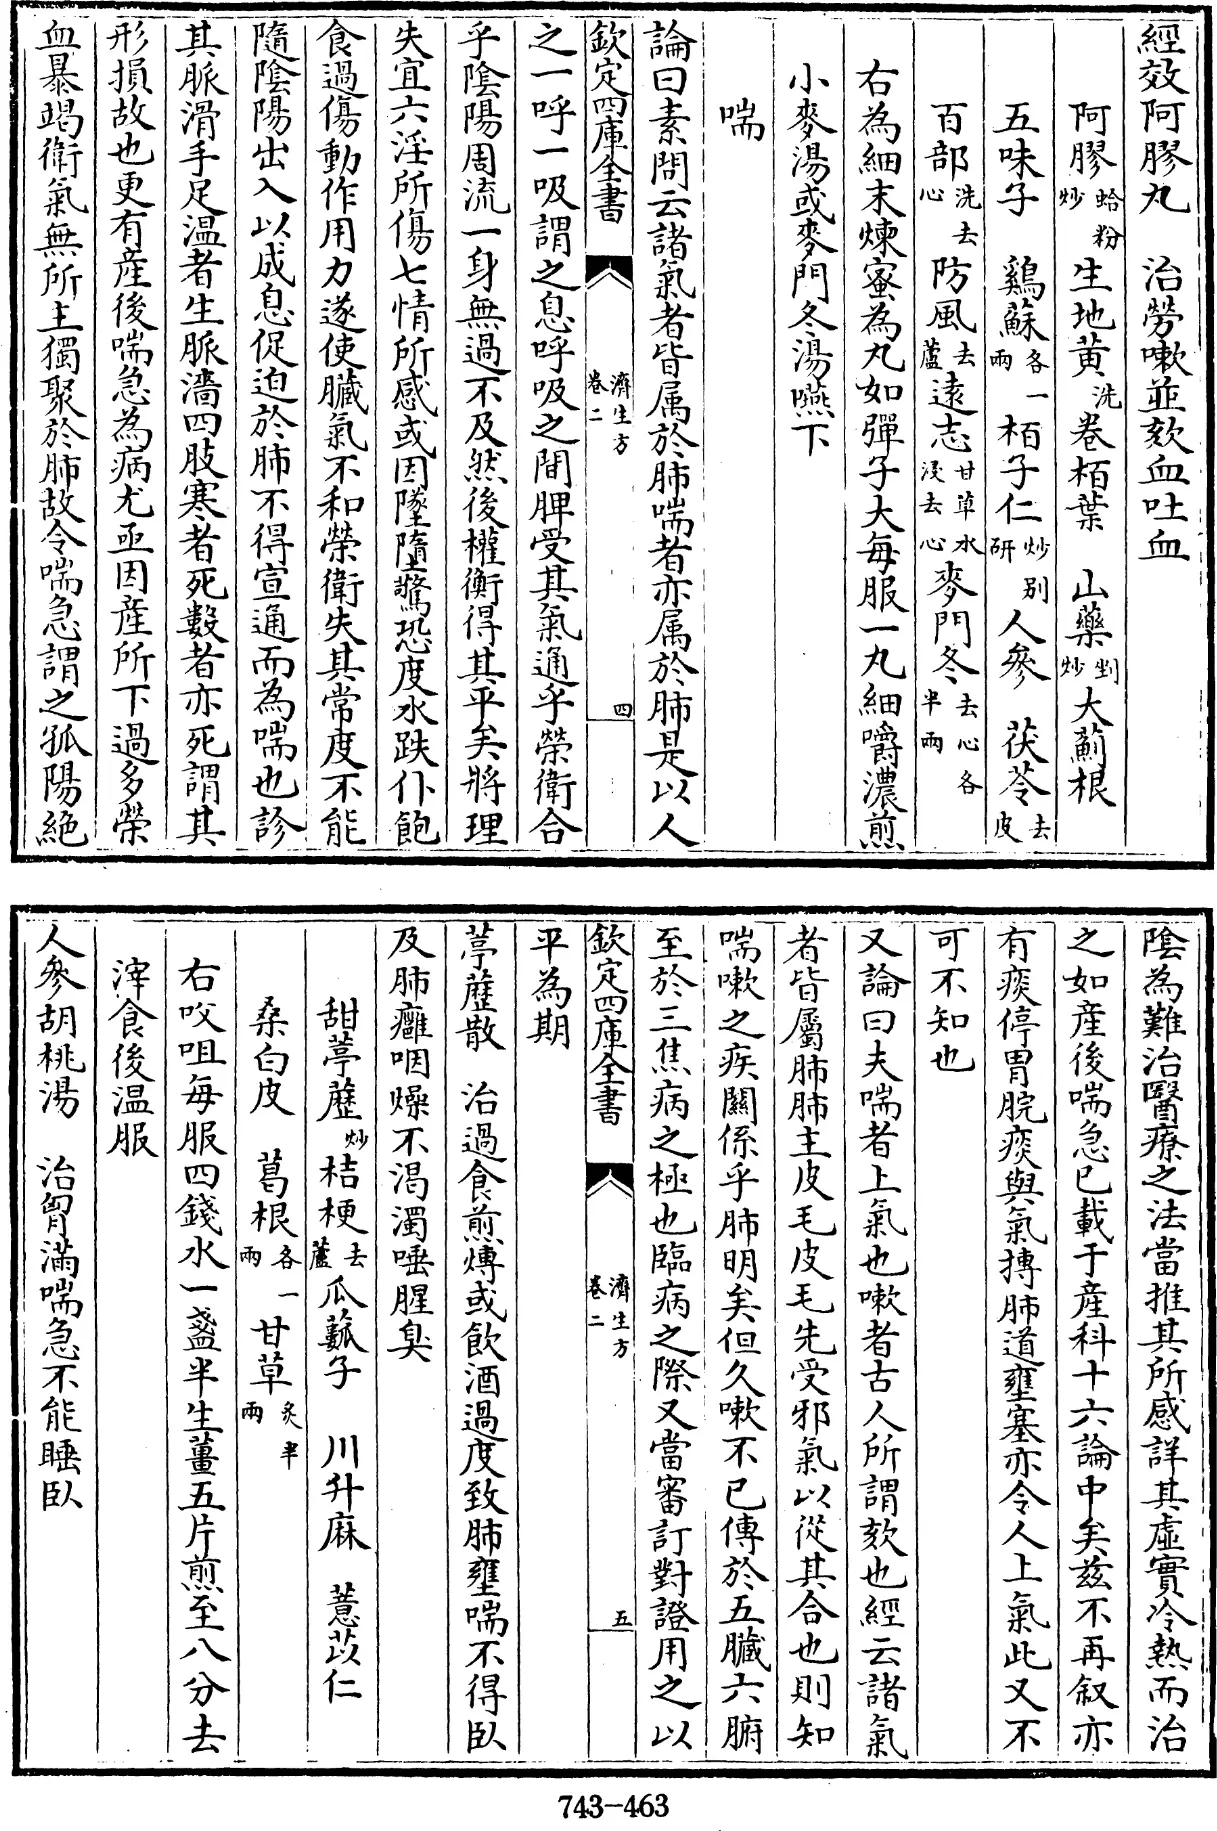 經效阿膠丸　治勞嗽並欬血吐血
阿膠蛤粉炒生地黃洗卷栢葉　山藥剉炒大薊根
五味子　鷄蘇各一兩栢子仁炒別研人參　茯苓去皮
百部洗去心防風去蘆遠志甘草水浸去心麥門冬去心各半兩
右為細末煉蜜為丸如彈子大每服一丸細嚼濃煎
小麥湯或麥門冬湯嚥下
喘
論曰素問云諸氣者皆属於肺喘者亦属於肺是以人
欽定四庫全書　濟生方卷二　四
之一呼一吸謂之息呼吸之間脾受其氣通乎榮衛合
乎陰陽周流一身無過不及然後權衡得其平矣將理
失宜六淫所傷七情所感或因墜墮驚恐度水跌仆飽
食過傷動作用力遂使臟氣不和榮衛失其常度不能
隨陰陽出入以成息促迫於肺不得宣通而為喘也診
其脈滑手足温者生脈濇四肢寒者死數者亦死謂其
形損故也更有産後喘急為病尤亟因産所下過多榮
血暴竭衛氣無所主獨聚於肺故令喘急謂之孤陽絶
陰為難治醫療之法當推其所感詳其虛實冷熱而治
之如産後喘急已載于産科十六論中矣兹不再叙亦
有痰停胃脘痰與氣摶肺道壅塞亦令人上氣此又不
可不知也
又論曰夫喘者上氣也嗽者古人所謂欬也經云諸氣
者皆屬肺肺主皮毛皮毛先受邪氣以從其合也則知
喘嗽之疾關係乎肺明矣但久嗽不已傳於五臟六腑
至於三焦病之極也臨病之際又當審訂對證用之以
欽定四庫全書　濟生方卷二　五
平為期
葶藶散　治過食煎煿或飲酒過度致肺壅喘不得臥
及肺癰咽燥不渴濁唾腥臭
甜葶藶炒桔梗去蘆瓜蔞子　川升麻　薏苡仁
桑白皮　葛根各一兩甘草炙半兩
右㕮咀每服四錢水一盞半生薑五片煎至八分去
滓食後温服
人參胡桃湯　治胷滿喘急不能睡臥
743-463